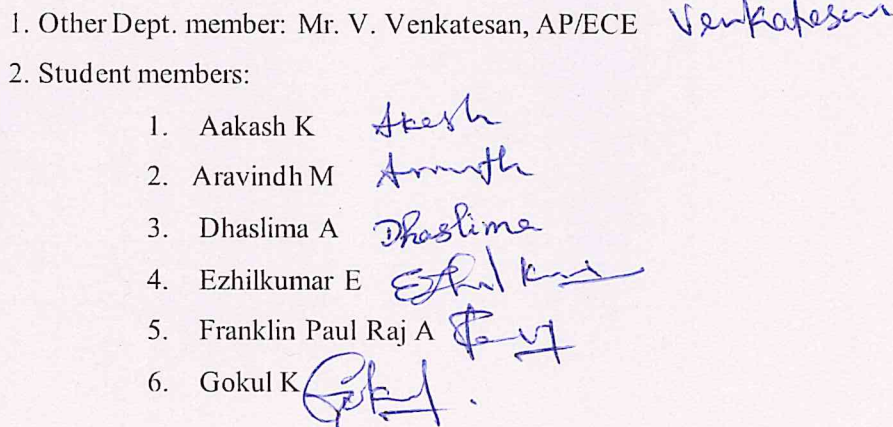 1. Other Dept. member: Mr. V. Venkatesan, AP/ECE Venkatesan
2. Student members:
1. Aakash K Akesh
2. Aravindh M
3. Dhaslima A Dhaslima
4. Ezhilkumar E
5. Franklin Paul Raj A
6. Gokul K Gokul